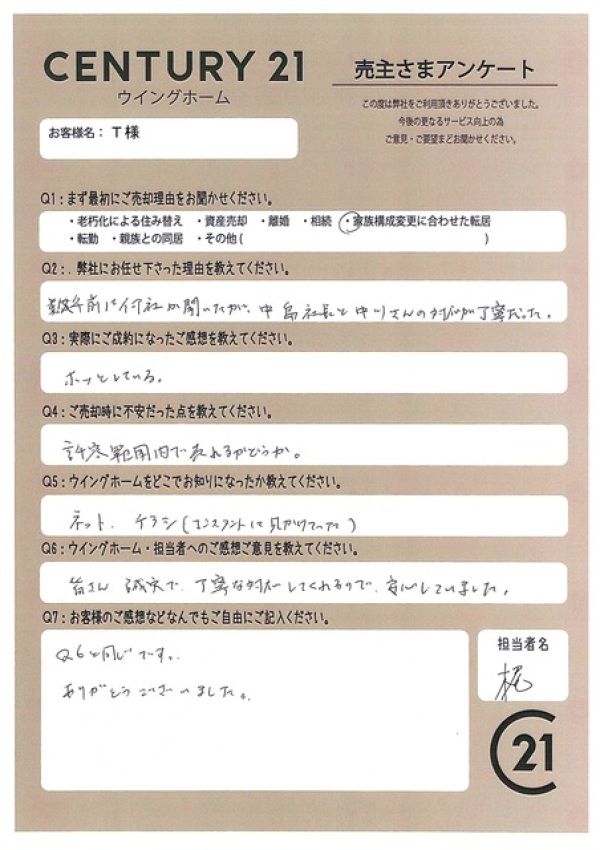 CENTURY 21
ウイングホーム
売主さまアンケート
この度は弊社をご利用頂きありがとうございました。
今後の更なるサービス向上の為
ご意見・ご要望まどお聞かせください。
お客様名：T様
Q1：まず最初にご売却理由をお聞かせください。
・老朽化による住み替え ・資産売却 ・離婚 ・相続 ・家族構成変更に合わせた転居
・転勤 ・親族との同居 ・その他( )
Q2：. 弊社にお任せ下さった理由を教えてください。
年前に何社か聞いたが、中島社長と中川さんの対応が丁寧だった。
Q3：実際にご成約になったご感想を教えてください。
ホッとしている。
Q4：ご売却時に不安だった点を教えてください。
許容範囲内で売れるかどうか。
Q5：ウイングホームをどこでお知りになったか教えてください。
ネット. チラシ(コンスタントに見かけていた)
Q6：ウイングホーム・担当者へのご感想ご意見を教えてください。
皆さん 誠実で、丁寧な対応してくれるので、安心していました。
Q7：お客様のご感想などなんでもご自由にご記入ください。
Q6と同じです。
ありがとうございました。
担当者名
梶
C21